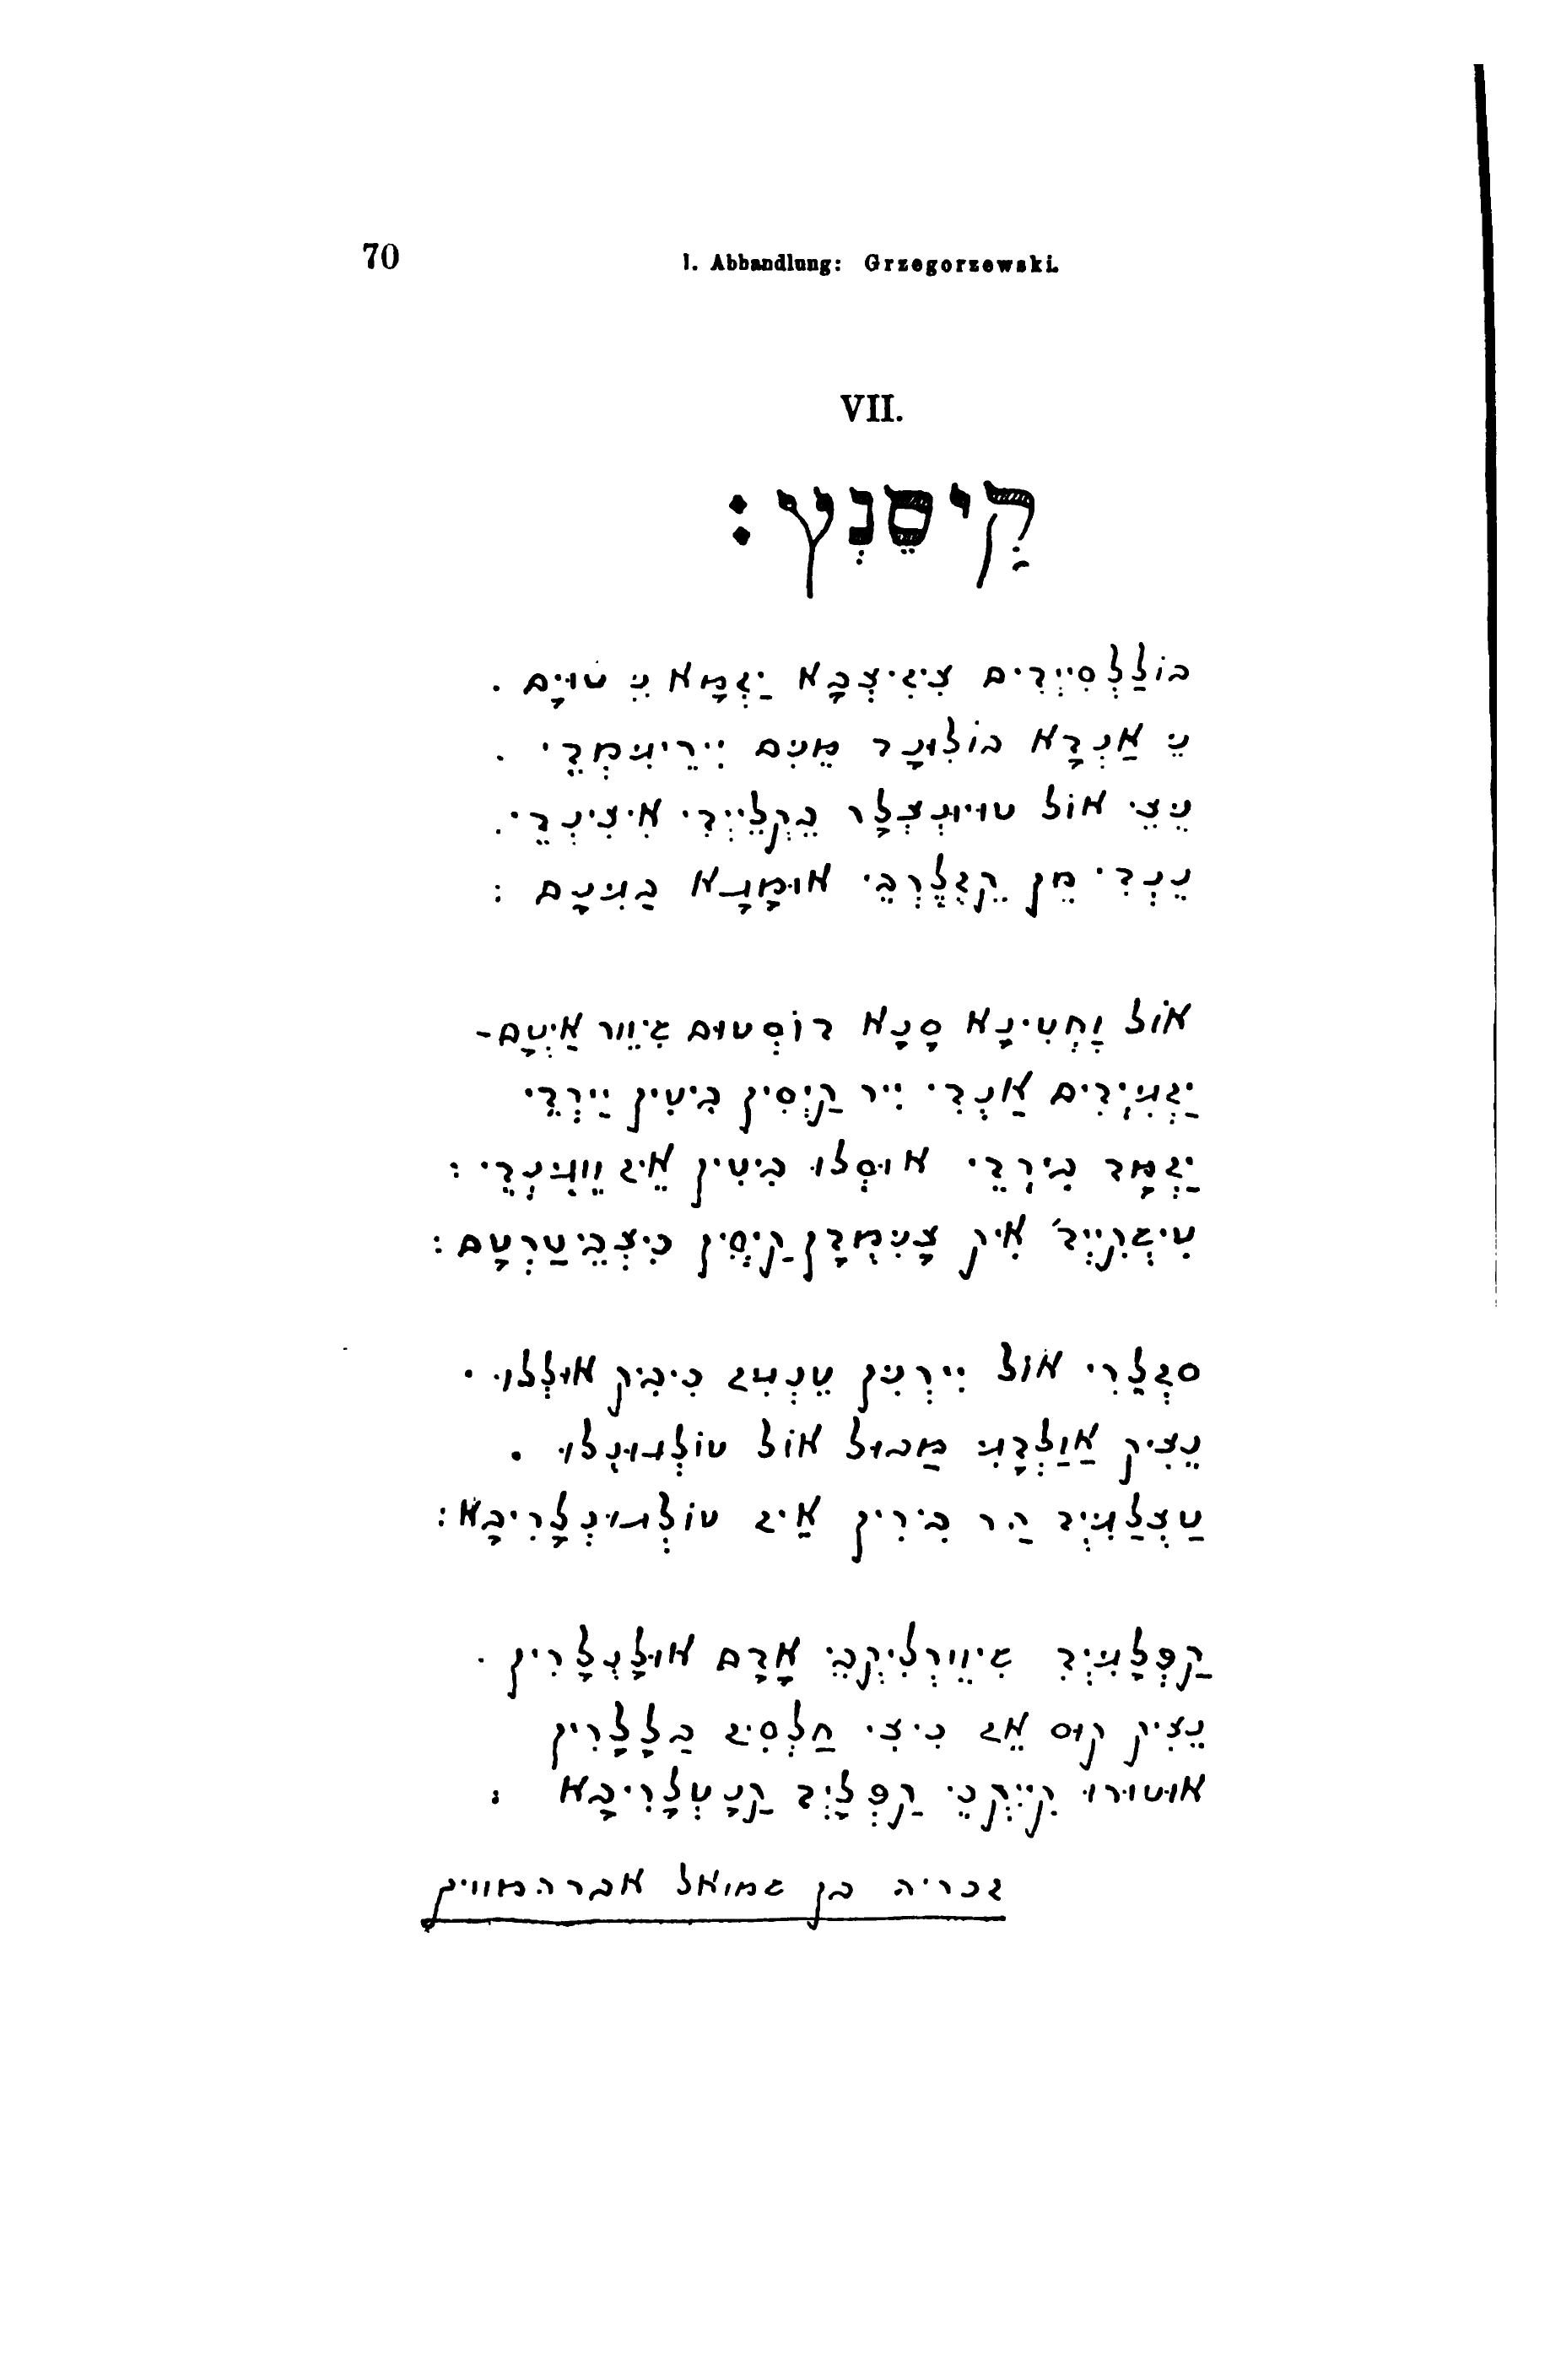 70
I. Abhandlung: Grzegorzewski.
VII.
קַיסֵנְץ :
בוֹלַלְסִיְידִים צִיגִיצְבָא יַזְמָא נֵי טוּיָם .
נֵי אַנְדָא בוֹלוּנָד מֵנִם יִירֵיגִמְדֵי .
נֵיצֵי אוֹל טוּיוּנְצְלָר בֵקְלֵיְידִי אִיצִינְדֵי .
נֵנְדִי מֵן קֵזְלֵרְבֵי אוּמָגָא בַגִנָם :
אוֹל וַחְטִינָא סָנָא דוֹסְטוּם גִיוֵור אַיְטָם -
יַזְגִיְדִים אַנְדִי יִיר קַיְסִין בִיטִין יֵירְדֵי
יַזְמָד בִירְדֵי אוּסְלוּ בִיטִין אֵיז וֵוגֻנְדֵי :
טִיגְקִיְיד אִיק צָנִמְדָן קַיְסִין כִיצְבֵי טַרְטָם :
סְזְלָרִי אוֹל יִירְנִין טֵנְגִז כִיבִיק אוּלְלוּ .
נֵצִיק אַוַלְדָגִי מַבוּל אוֹל טוֹלְגוּנְלוּ .
טַצְלַגִיְד הַר בִירִין אַיז טוֹלְגוּנְלָרִיבָא :
קַפְּלָגִיְד גִיוֵורְלִיקְבֵי אָדָם אוּלָנְלָרִין .
נֵצִיק קוּס אֵז כִיצִי חַלְסִיז בַלָלָרִין
אוּטוּרוּ קִיְיקְבֵי קַפְּלָיְד קַנָטְלָרִיבָא :
זכריה בן שמואל אברהמוויק